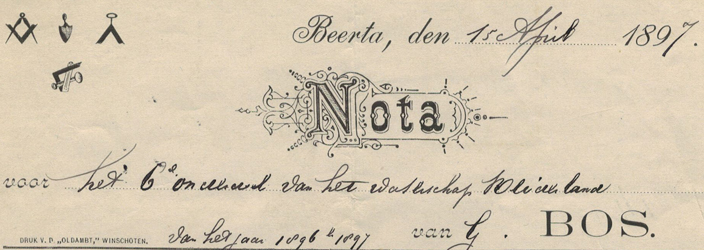 Beerta, den 15 April 1897.
Nota
voor het 6e onderdeel van het waterschap
van het jaar 1896 tt 1897 van G. BOS.
DRUK V. P. „OLDAMBT,” WINSCHOTEN.